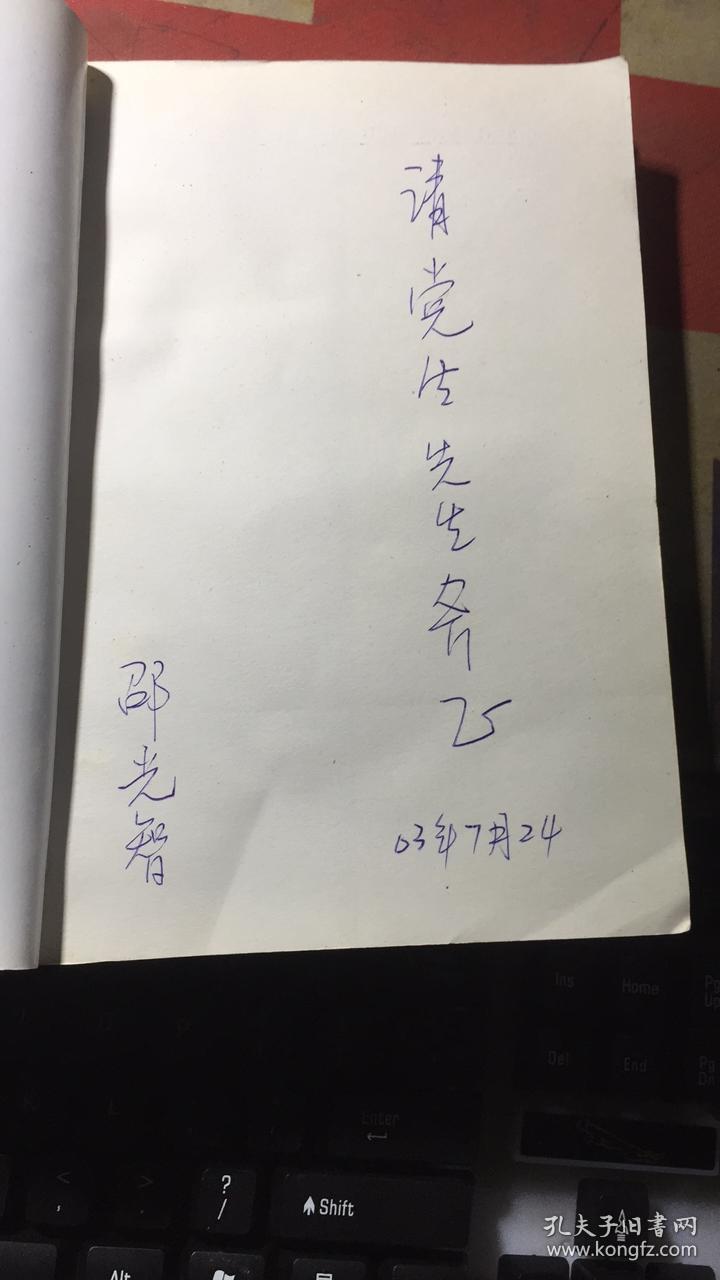 请党法先生斧正
03年7月24
邵光智
Ins
Home
Pg Up
Del
End
Pg Dn
Enter
<
,
>
.
?
/
Shift
Alt
孔夫子旧書网
www.kongfz.com